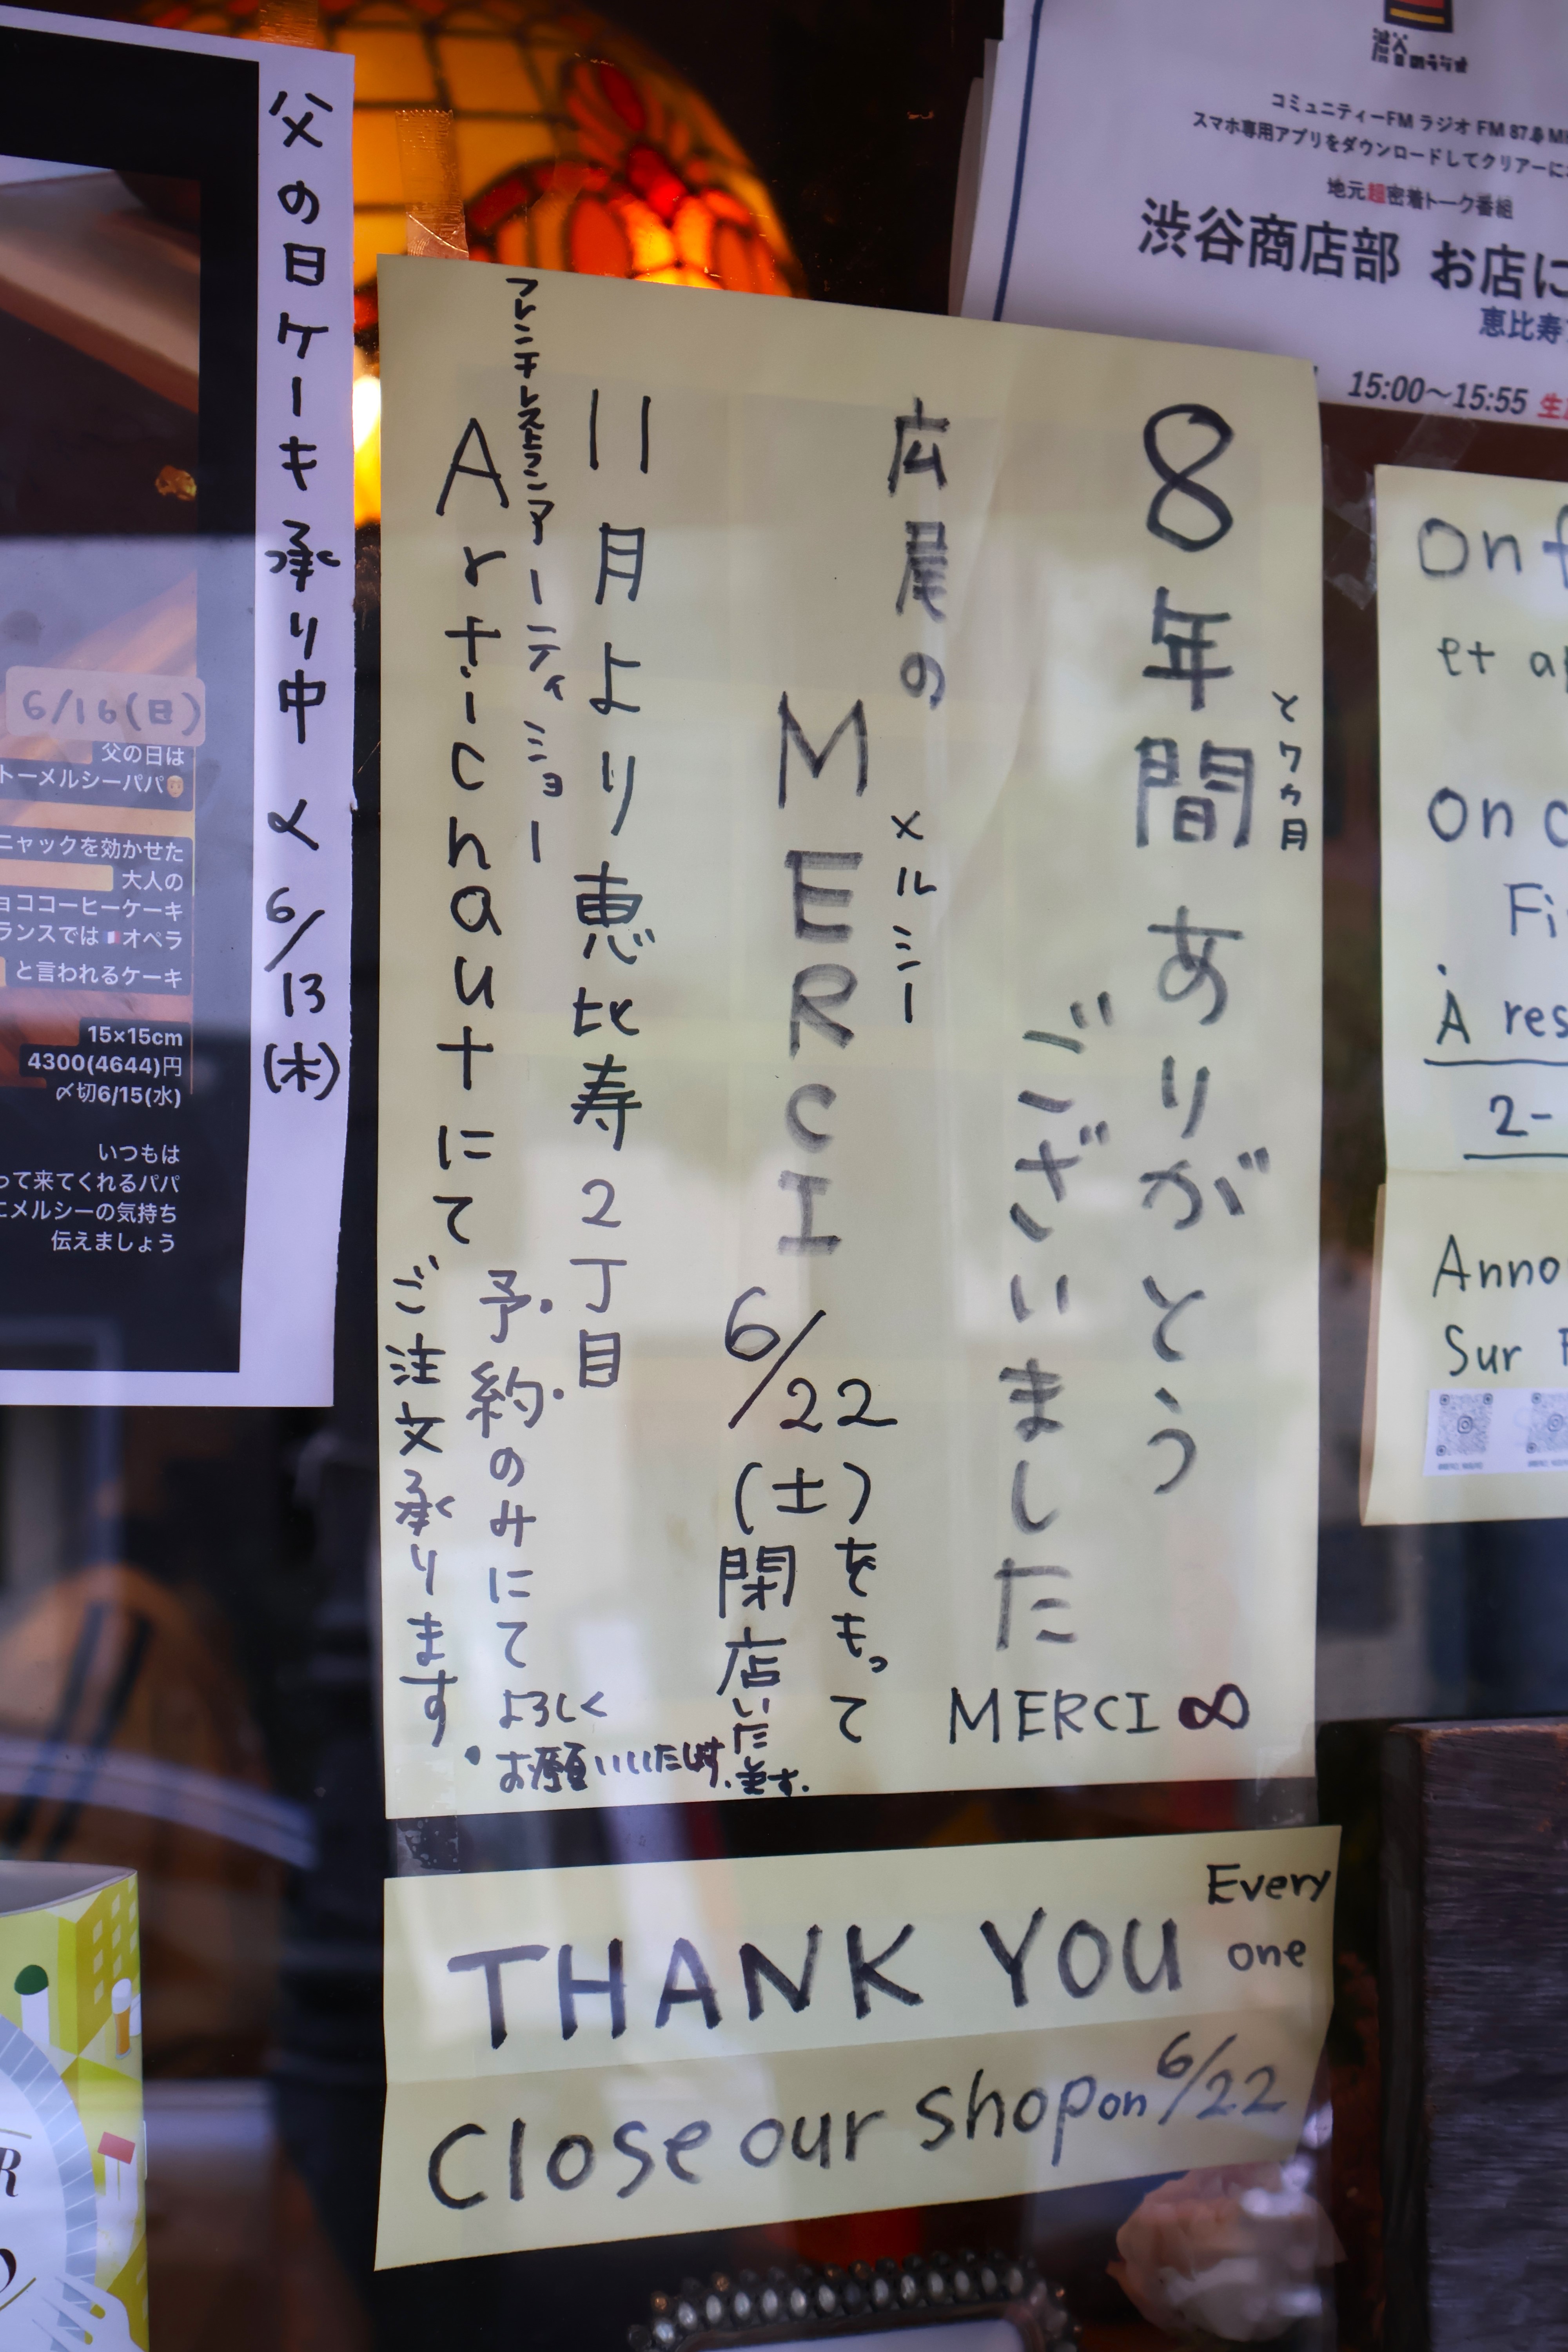 父の日ケーキ承り中 〆6/13(木)
6/16(日)
父の日は
トーメルシーパパ
ニャックを効かせた
大人の
ョココーヒーケーキ
ランスでは🇫🇷オペラ
と言われるケーキ
15×15cm
4300(4644)円
〆切6/15(水)
いつもは
って来てくれるパパ
にメルシーの気持ち
伝えましょう
8年間ありがとう
と7ヵ月
ございました
MERCI ∞
広尾の
メルシー
MERCI
6/22(土)をもって
閉店いたします.
11月より恵比寿2丁目
フレンチレストランアーティショー
Artichautにて
予約のみにて
ご注文承ります.
よろしく
お願いいたします.
THANK YOU Every one
Close our shop on 6/22
渋谷のラジオ
コミュニティーFM ラジオ FM 87.
スマホ専用アプリをダウンロードしてクリアーに
地元超密着トーク番組
渋谷商店部 お店に
恵比寿
15:00〜15:55 生
On f
et a
On c
Fi
À res
2-
Anno
Sur F
R